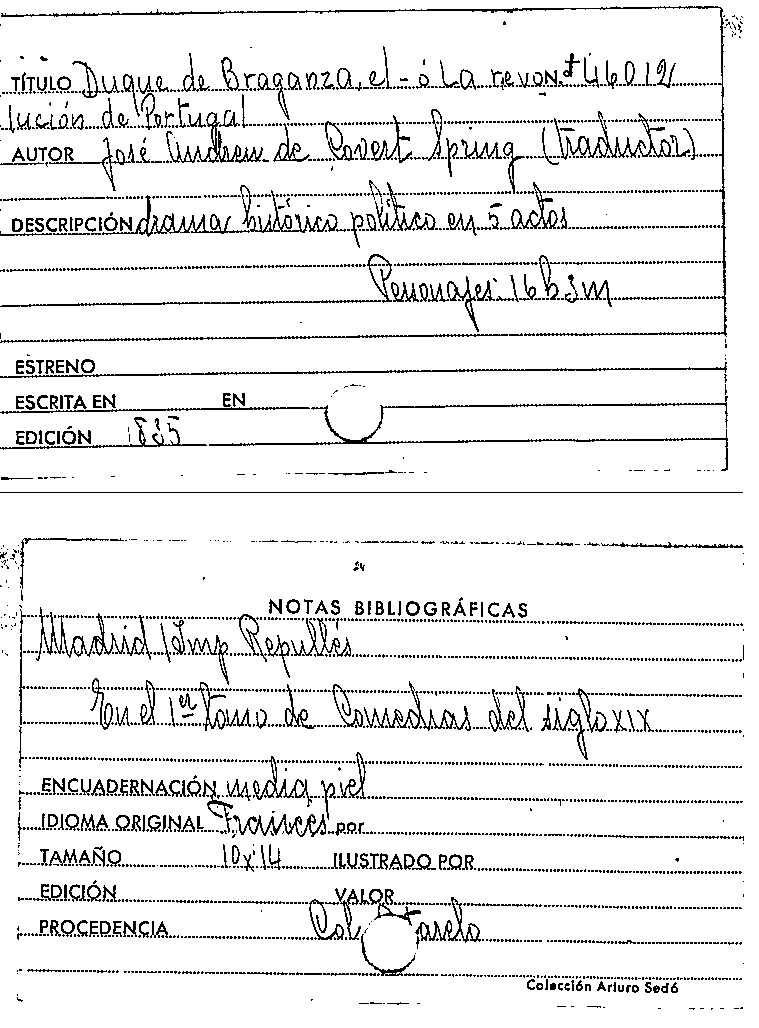 TÍTULO Duque de Braganza, el - ó La revo N.º 46012
lución de Portugal
AUTOR José Andrew de Covert Spring (traductor)
DESCRIPCIÓN drama histórico político en 5 actos
Personajes: 16 h 3 m
ESTRENO
ESCRITA EN EN
EDICIÓN 1835
24
NOTAS BIBLIOGRÁFICAS
Madrid / Imp Repullés
En el 1er Tomo de Comedias del siglo XIX
ENCUADERNACIÓN media piel
IDIOMA ORIGINAL Francés por
TAMAÑO 10x14 ILUSTRADO POR
EDICIÓN VALOR
PROCEDENCIA Col.
Colección Arturo Sedó